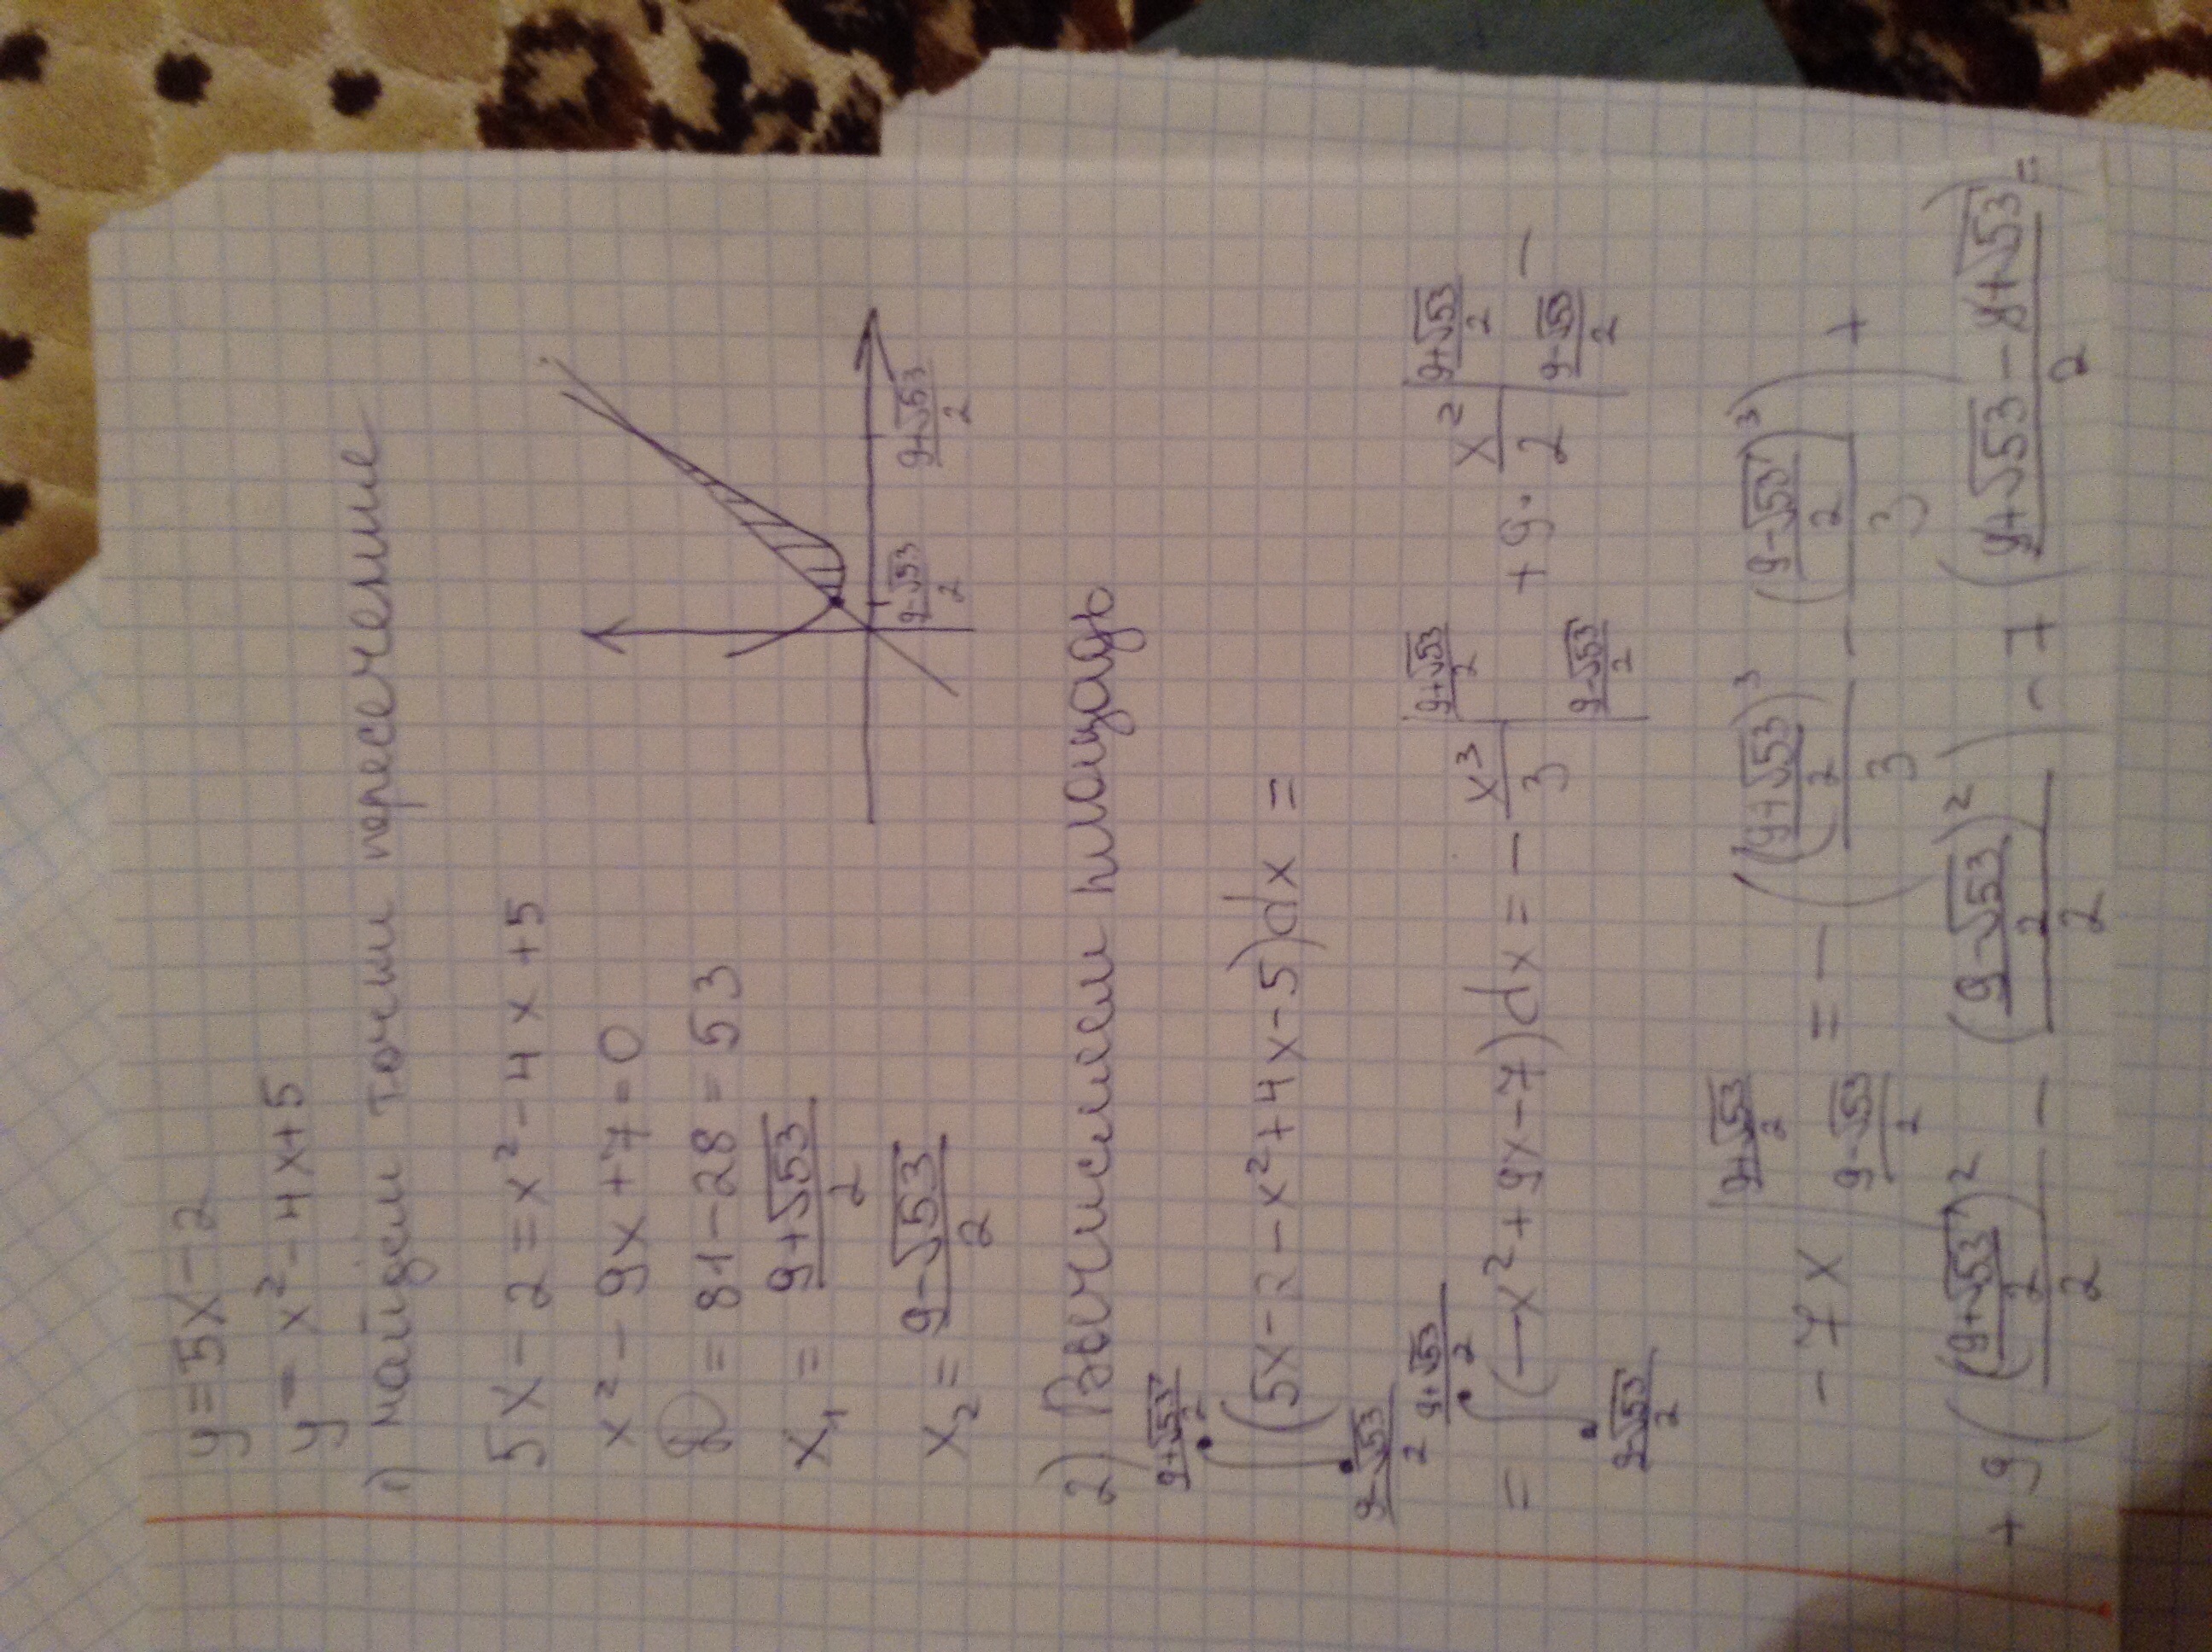 y=5x-2
y=x²-4x+5
1) найдём точки пересечение
5x-2=x²-4x+5
x²-9x+7=0
D=81-28=53
x₁ = (9+√53)/2
x₂ = (9-√53)/2
(9-√53)/2 (9+√53)/2
2) Рассчислем площадь
∫_{(9-√53)/2}^{(9+√53)/2} (5x-2-x²+4x-5)dx =
= ∫_{(9-√53)/2}^{(9+√53)/2} (-x²+9x-7)dx = - x³/3 |_{(9-√53)/2}^{(9+√53)/2} + 9· x²/2 |_{(9-√53)/2}^{(9+√53)/2} -
-7x |_{(9-√53)/2}^{(9+√53)/2} = - (((9+√53)/2)³/3 - ((9-√53)/2)³/3) +
+9 (((9+√53)/2)²/2 - ((9-√53)/2)²/2) - 7 ((9+√53-9+√53)/2) =